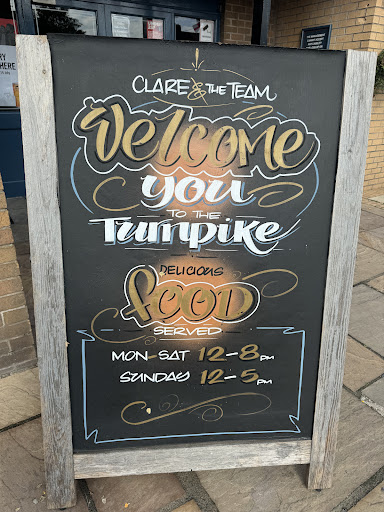 CLARE & THE TEAM
Welcome
you
TO THE
Turnpike
DELICIOUS
FOOD
SERVED
MON-SAT 12-8 PM
SUNDAY 12-5 PM